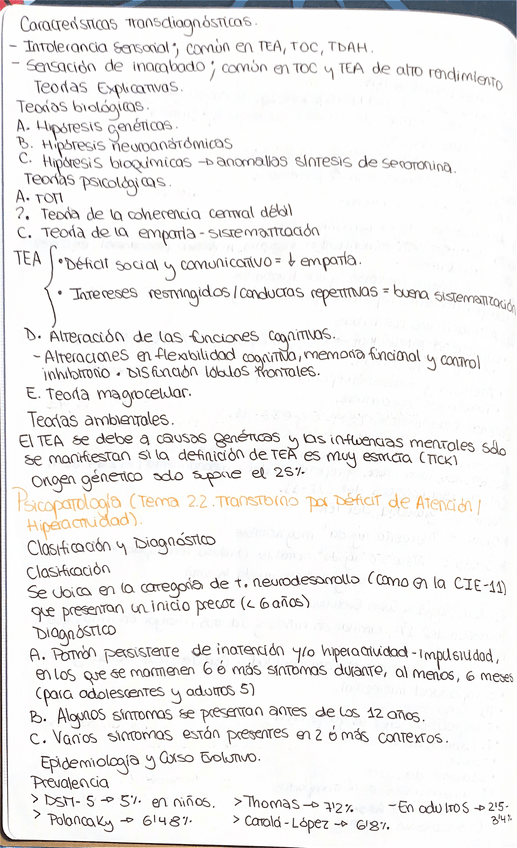 Características transdiagnósticas.
- Intolerancia sensorial; común en TEA, TOC, TDAH.
- Sensación de inacabado; común en TOC y TEA de alto rendimiento
Teorías Explicativas.
Teorías biológicas.
A. Hipótesis genéticas.
B. Hipótesis neuroanatómicas
C. Hipótesis bioquímicas → anomalías síntesis de serotonina.
Teorías psicológicas.
A. TOM
?. Teoría de la coherencia central débil
C. Teoría de la empatía - sistematización
TEA
• Déficit social y comunicativo = ↓ empatía.
• Intereses restringidos / conductas repetitivas = buena sistematización
D. Alteración de las funciones cognitivas.
- Alteraciones en flexibilidad cognitiva, memoria funcional y control
inhibitorio • Disfunción lóbulos frontales.
E. Teoría magnocelular.
Teorías ambientales.
El TEA se debe a causas genéticas y las influencias mentales sólo
se manifiestan si la definición de TEA es muy estricta (TICK)
Origen génetico solo supone el 25%
Psicopatología (Tema 2.2. Transtorno por Déficit de Atención /
Hiperactividad).
Clasificación y Diagnóstico
Clasificación
Se ubica en la categoría de t. neurodesarrollo (como en la CIE-11)
que presentan un inicio precoz (< 6 años)
Diagnóstico
A. Patrón persistente de inatención y/o hiperactividad - Impulsividad,
en los que se mantienen 6 ó más síntomas durante, al menos, 6 meses
(para adolescentes y adultos 5)
B. Algunos síntomas se presentan antes de los 12 años.
C. Varios síntomas están presentes en 2 ó más contextos.
Epidemiología y Curso Evolutivo.
Prevalencia
> DSM-5 → 5% en niños. > Thomas → 7'2% - En adultos → 2'5-
> Polancaky → 6'48% > Catalá-López → 6'8% 3'4%